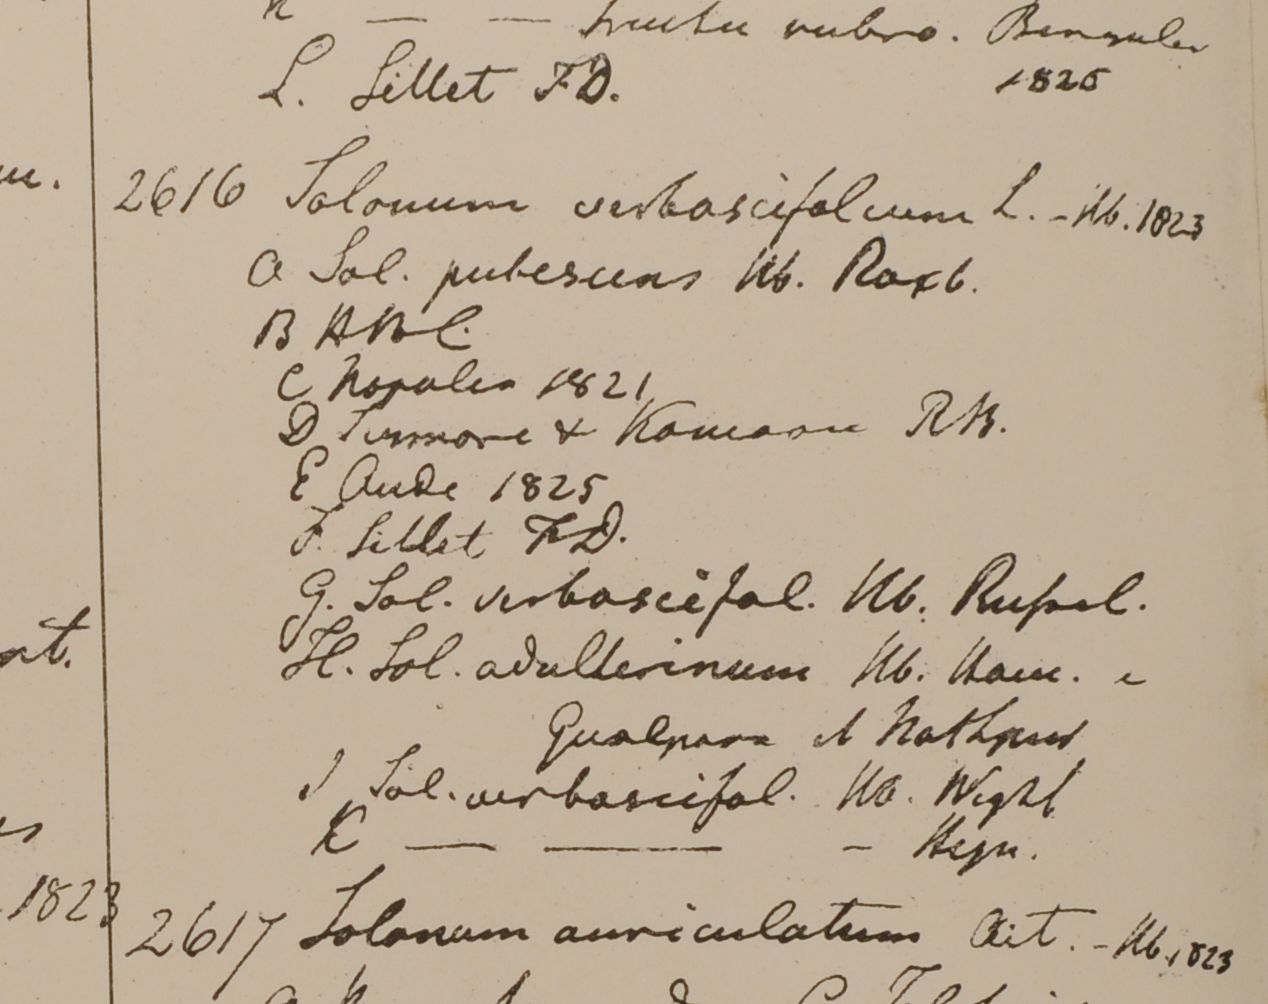 K — — fructu rubro. Bengalen
1825
L. Sillet FD.
2616 Solanum verbascifolium L. - Hb. 1823
a Sol. pubescens Hb. Roxb.
B HBC.
C Napalia 1821
D Sirmore & Kamaon RB.
E Aude 1825
F. Sillet FD.
G. Sol. verbascifol. Hb. Russel.
H. Sol. adulterinum Hb. Ham. e
Gualpara et Nathpur
I Sol. verbascifol. Hb. Wight
K — — - Heyn.
1823
2617 Solanum auriculatum Ait. - Hb. 1823